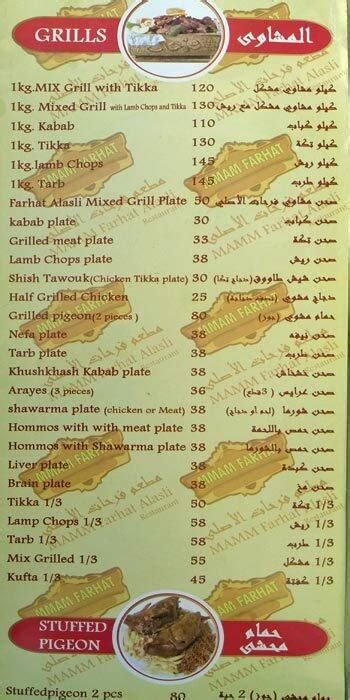 GRILLS المشاوى
1kg.MIX Grill with Tikka 120 كيلو مشاوي مشكل
1kg. Mixed Grill with Lamb Chops and Tikka 130 كيلو مشاوي مشكل مع ريش
1kg. Kabab 110 كيلو كباب
1kg. Tikka 130 كيلو تكة
1kg.lamb Chops 145 كيلو ريش
1kg. Tarb 145 كيلو طرب
Farhat Alasli Mixed Grill Plate 50 صحن مشاوي فرحات الأصلي
kabab plate 30 صحن كباب
Grilled meat plate 33 صحن تكة
Lamb Chops plate 38 صحن ريش
Shish Tawouk(Chicken Tikka plate) 30 صحن شيش طاووق(دجاج تكا)
Half Grilled Chicken 25 دجاج مشوي (نصف دجاجة)
Grilled pigeon(2 pieces ) 80 حمام مشوي (جوز)
Nefa plate 38 صحن نيفه
Tarb plate 38 صحن طرب
Khushkhash Kabab plate 38 صحن خشخاش
Arayes (3 pieces) 36 صحن عرايس (3قطع)
shawarma plate (chicken or Meat) 38 صحن شورما (لحم او دجاج)
Hommos with with meat plate 38 صحن حمص باللحمة
Hommos with Shawarma plate 38 صحن حمص بالشورما
Liver plate 38 صحن كبدة
Brain plate 38 صحن مخ
Tikka 1/3 50 1/3 تكة
Lamp Chops 1/3 58 1/3 ريش
Tarb 1/3 58 1/3 طرب
Mix Grilled 1/3 55 1/3 مشكل
Kufta 1/3 45 1/3 كفتة
STUFFED PIGEON حمام محشى
Stuffedpigeon 2 pcs 80 حمام محشي (جوز) 2 حبة